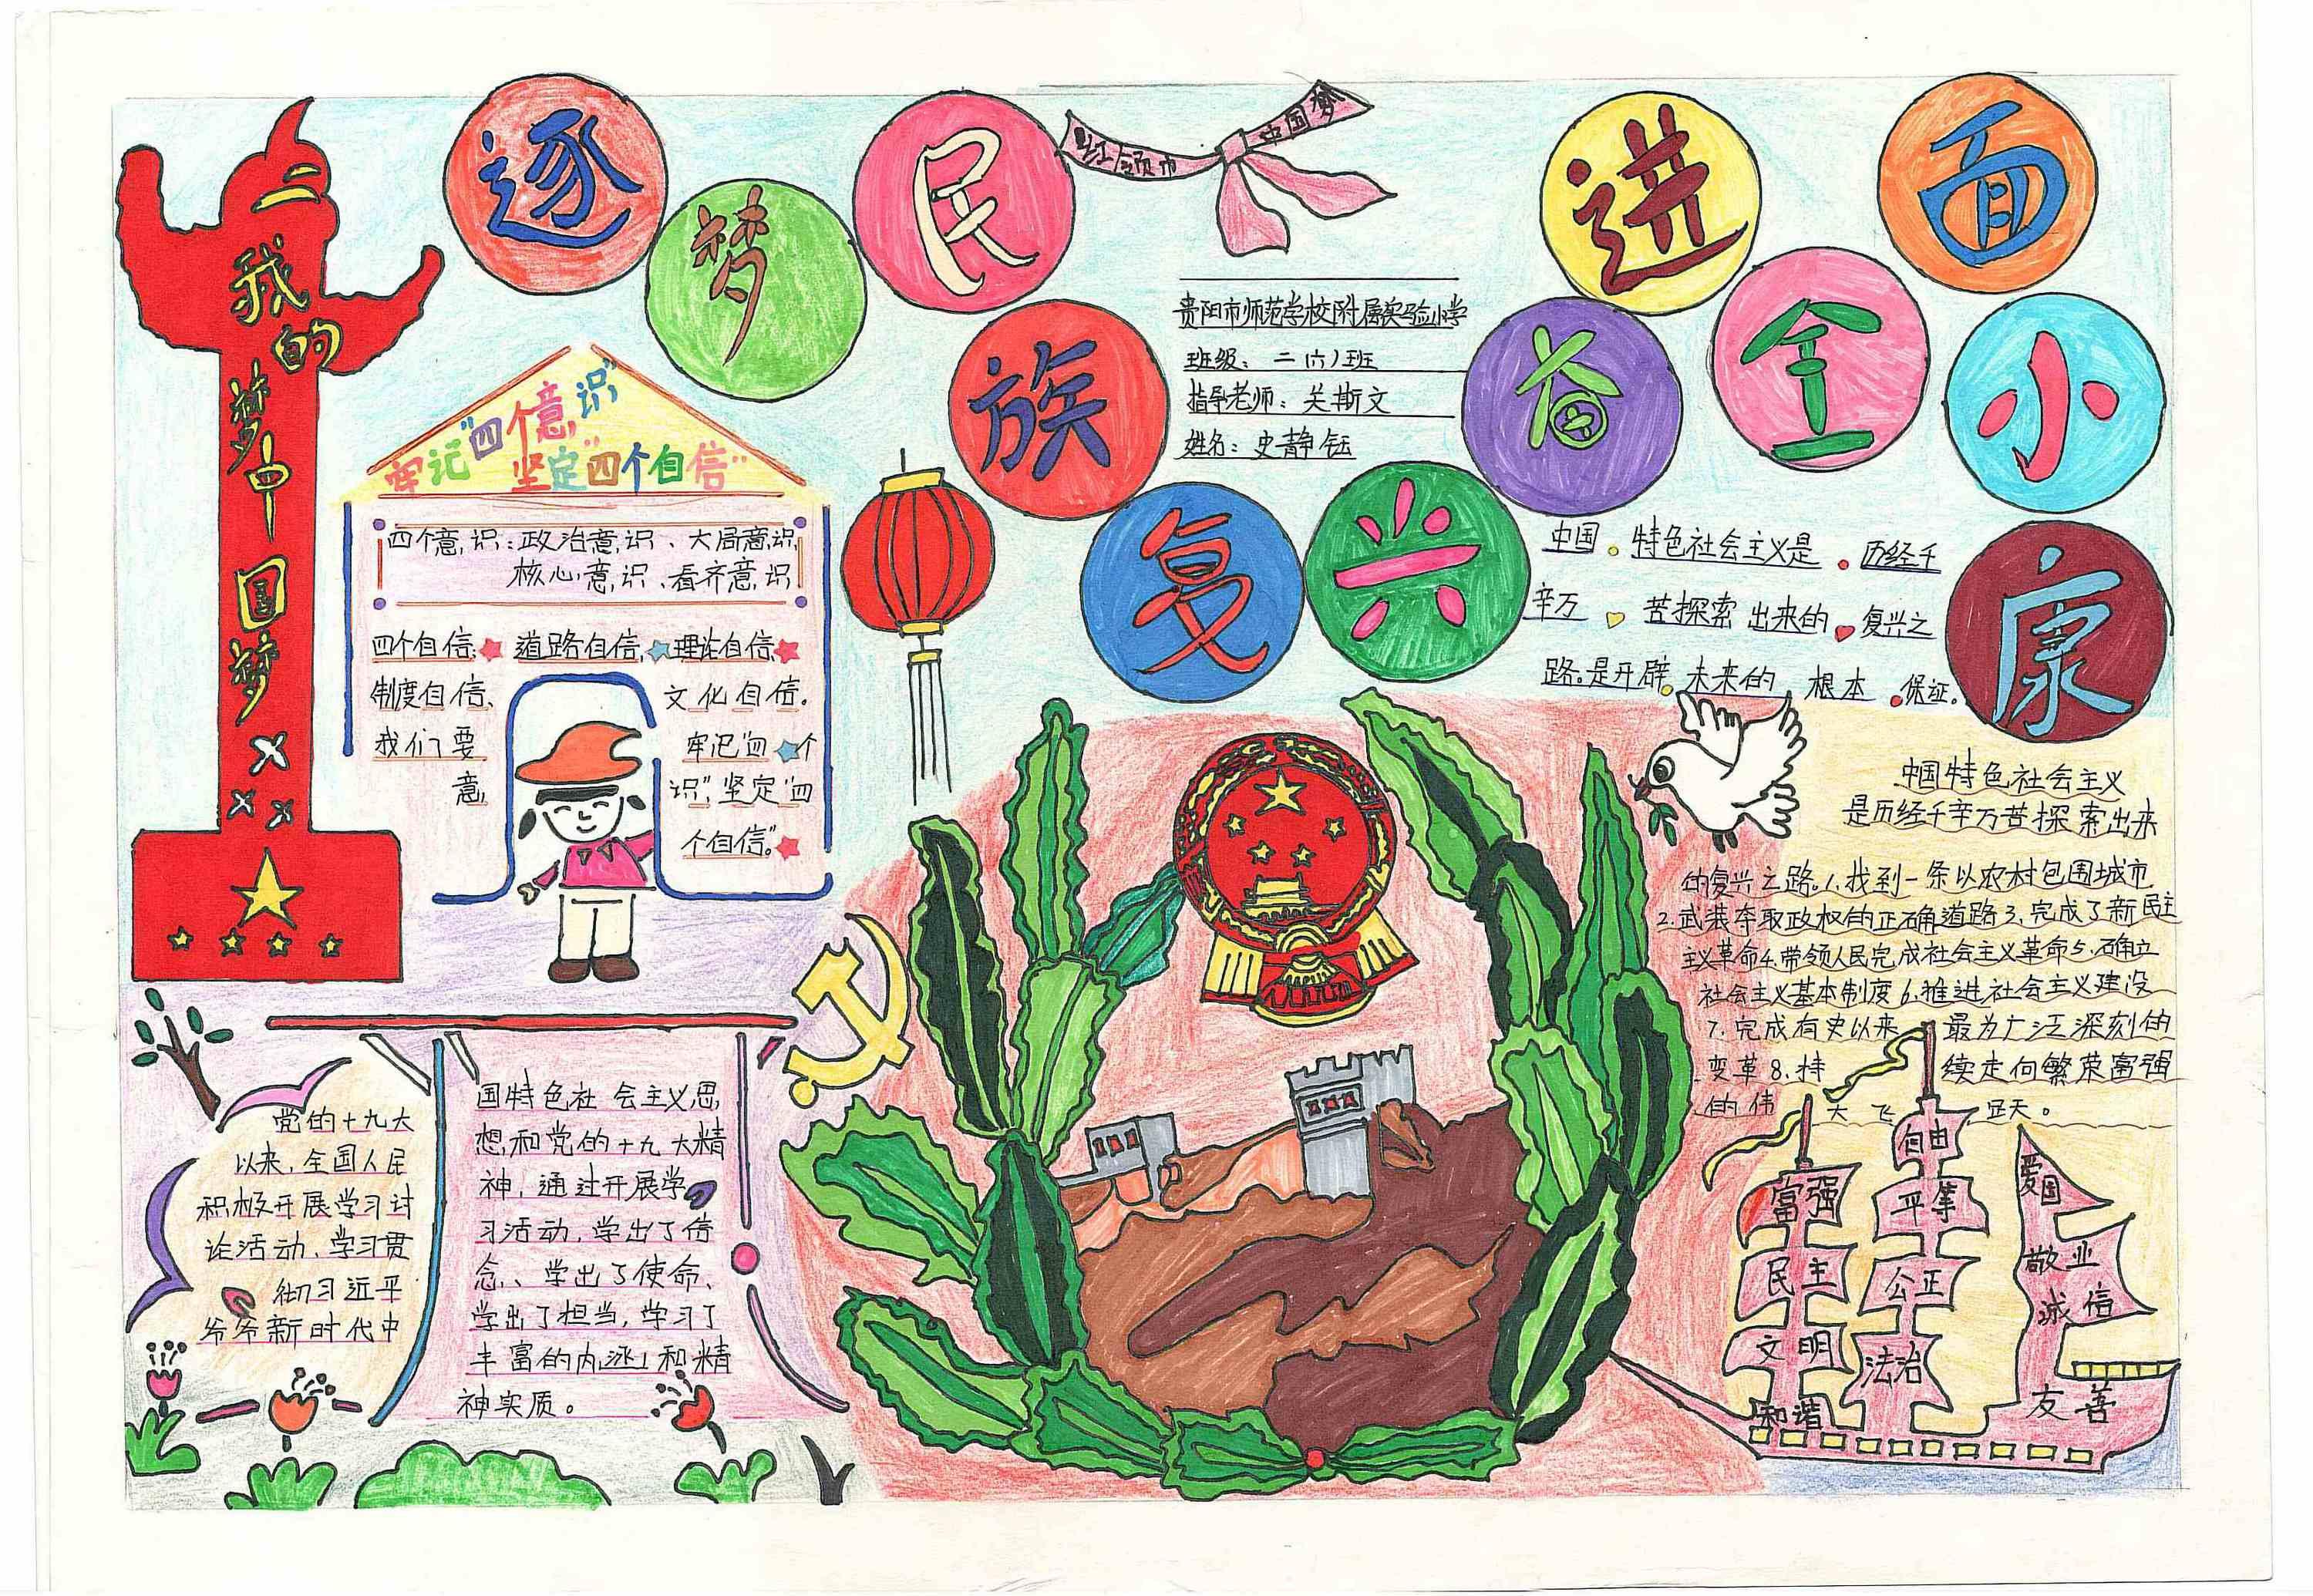 逐梦民族复兴
奋进全面小康
红领巾
中国梦
我的梦中国梦
贵阳市师范学校附属实验小学
班级：二（六）班
指导老师：关斯文
姓名：史静钰
牢记"四个意识"
坚定"四个自信"
四个意识：政治意识、大局意识、
核心意识、看齐意识
四个自信：道路自信、理论自信、
制度自信、文化自信。
我们要牢记"四个
意识"，坚定"四
个自信。"
中国特色社会主义是历经千
辛万苦探索出来的复兴之
路。是开辟未来的根本保证。
中国特色社会主义
是历经千辛万苦探索出来
的复兴之路。1、找到一条以农村包围城市
2.武装夺取政权的正确道路3、完成了新民主
主义革命4.带领人民完成社会主义革命5、确立
社会主义基本制度6、推进社会主义建设
7、完成有史以来最为广泛深刻的
变革8、持续走向繁荣富强
的伟大飞
党的十九大
以来，全国人民
积极开展学习讨
论活动，学习贯
彻习近平
爷爷新时代中
国特色社会主义思
想和党的十九大精
神，通过开展学
习活动，学出了信
念、学出了使命、
学出了担当，学习了
丰富的内涵和精
神实质。
富强
民主
文明
和谐
自由
平等
公正
法治
爱国
敬业
诚信
友善